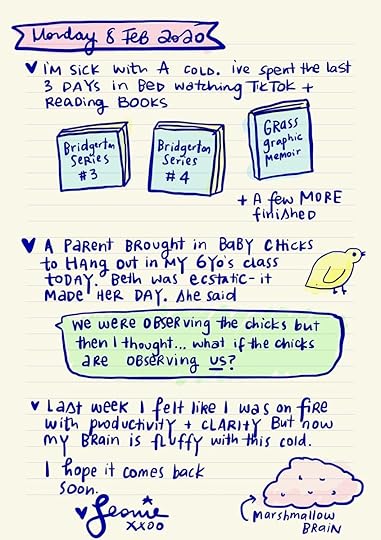 Monday 8 Feb 2020
I'm sick with A cold. ive spent the last
3 DAYS in Bed watching TikTok +
Reading Books
Bridgerton
Series
#3
Bridgerton
Series
#4
GRASS
graphic
memoir
+ A few MORE
finished
A PARENT BROUGHT in BaBY CHicks
to HAng out in MY 6yo's class
today. Beth was ecstatic - it
MADE HER DAY. she said
We were OBSERVING the chicks but
then I thought... what if the chicks
ARE OBSERVING us?
Last week I felt like I was on fire
with productivity + CLARITY But now
my BRain is fluffy with this cold.
I hope it comes back
soon.
Leonie
xxoo
Marshmallow
BRAIN